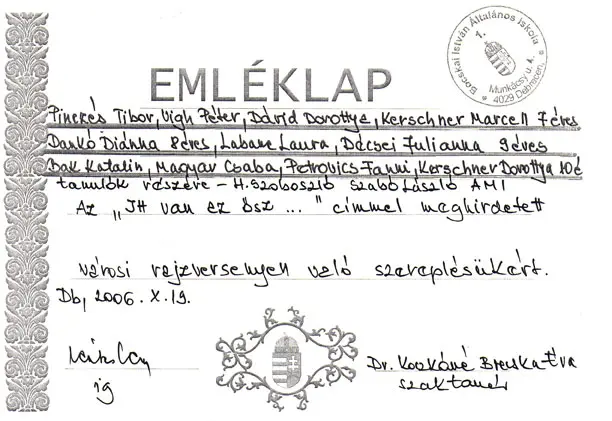 EMLÉKLAP
Bocskai István Általános Iskola
1.
Munkácsy u. 4.
4029 Debrecen
Pinczés Tibor, Vigh Péter, Dávid Dorottya, Kerschner Marcell 7éves
Dankó Diánna 8éves, Labanc Laura, Dácsei Julianna 9éves
Bak Katalin, Magyar Csaba, Petrovics Fanni, Kerschner Dorottya 10é
tanulók részére – H.szoboszló Szabó László AMI
Az „Itt van az ősz ..." címmel meghirdetett
városi rajzversenyen való szereplésükért.
Db, 2006. X. 19.
ig
Dr. Éva
szaktanár